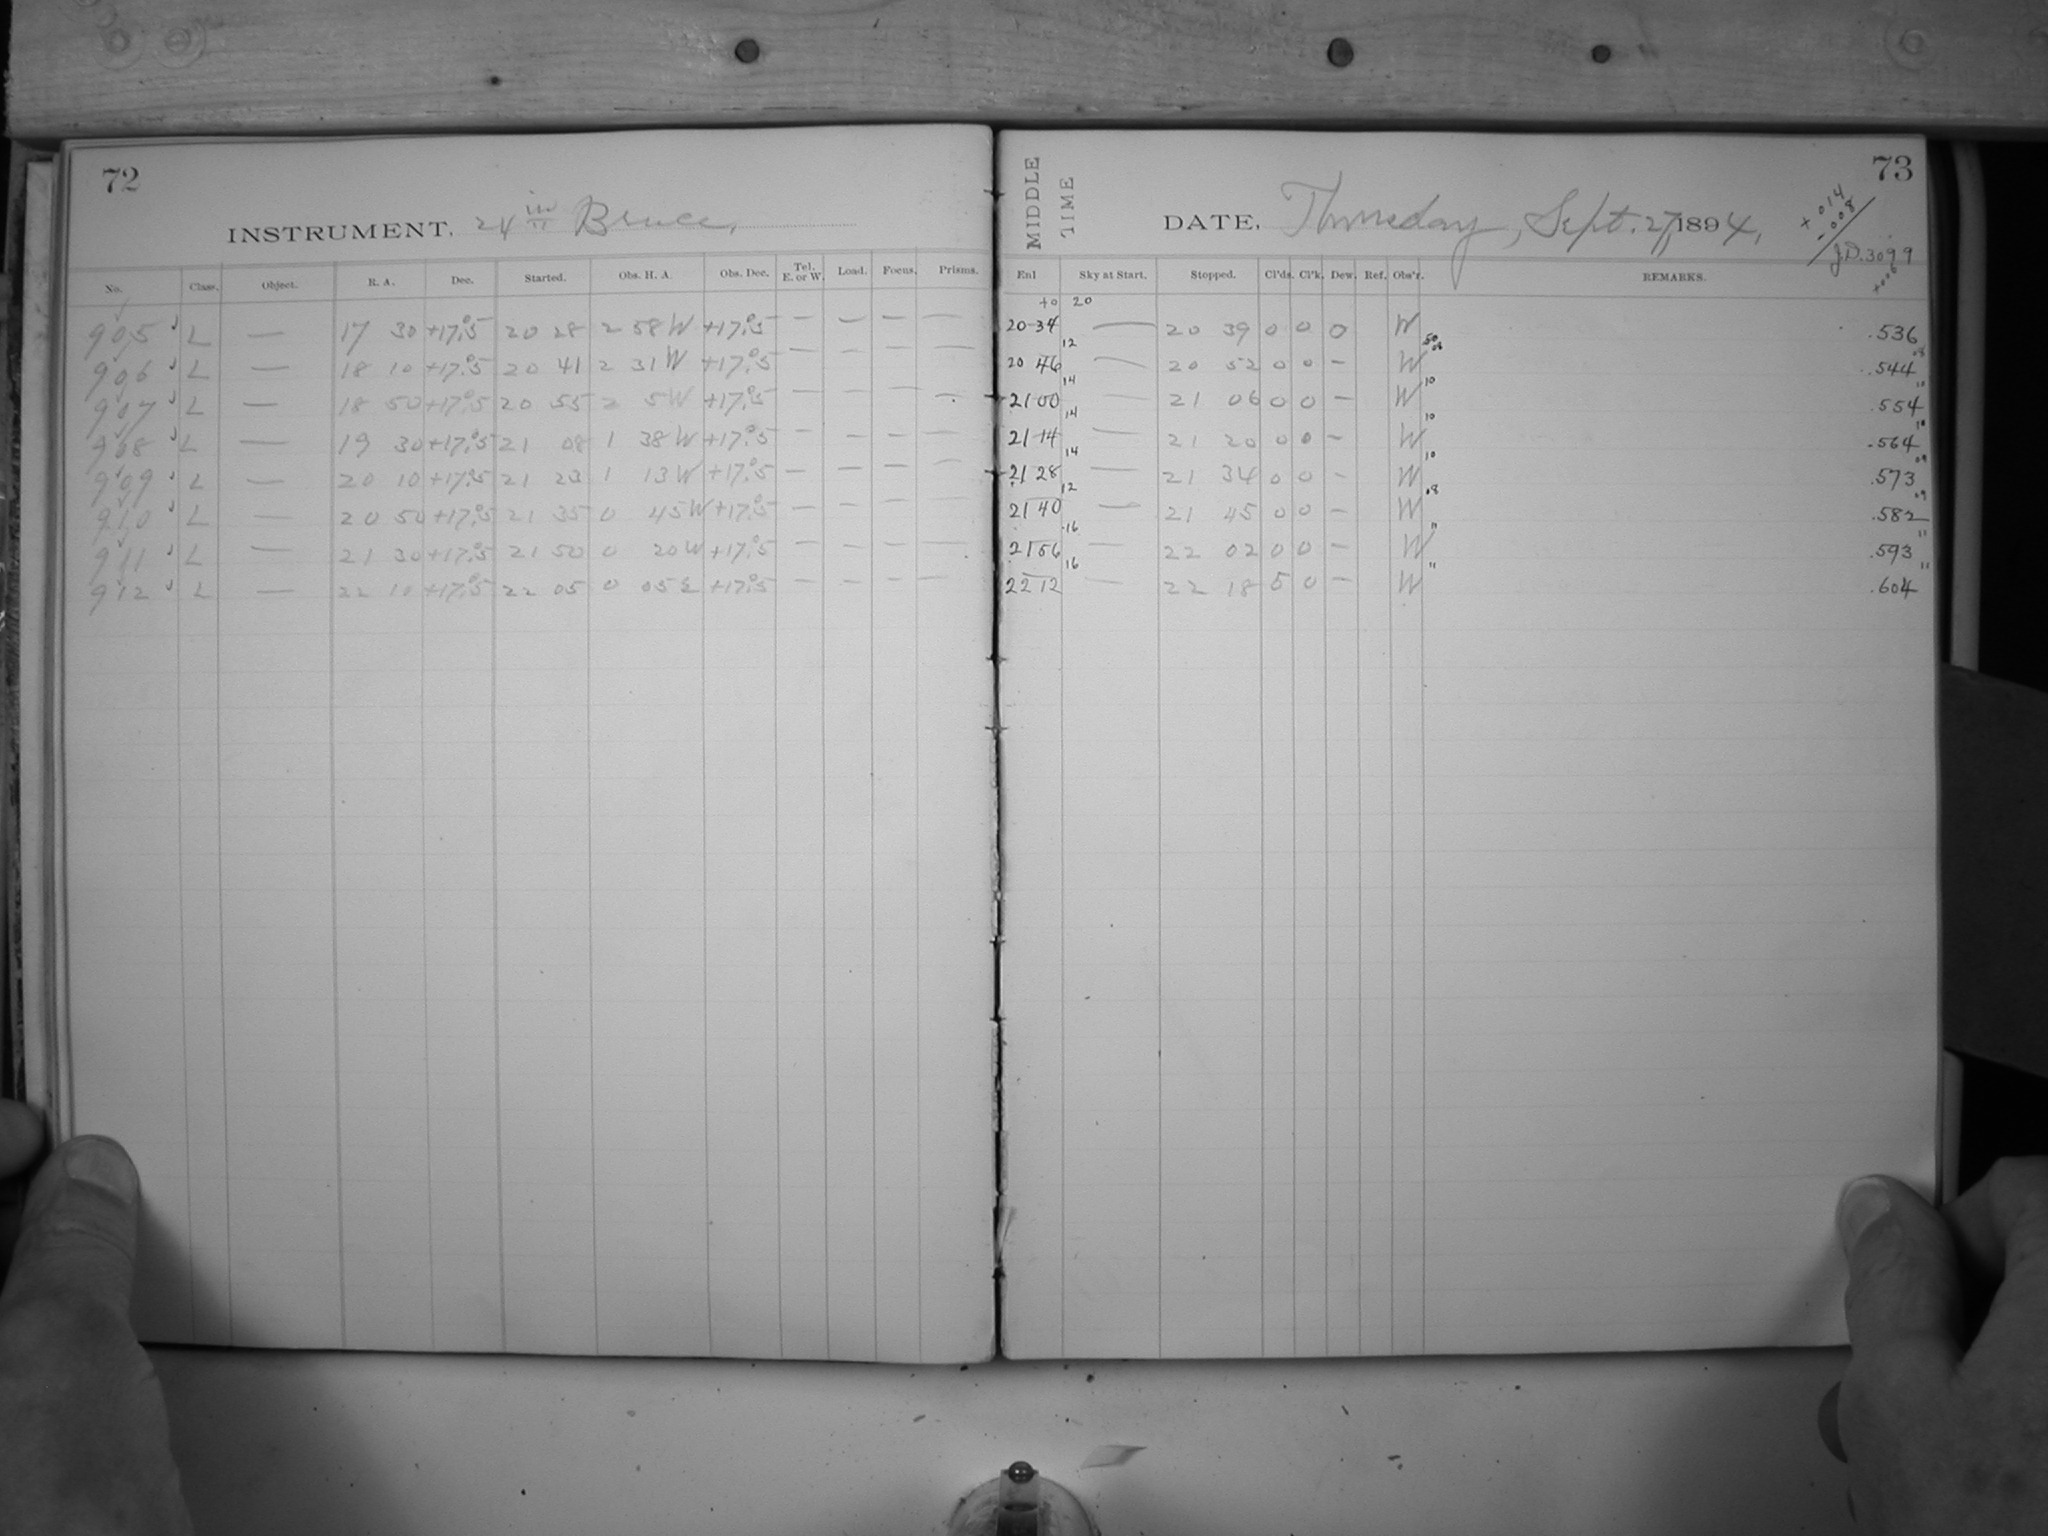 72
INSTRUMENT. 24 in Bruce.
No. Class. Object. R. A. Dec. Started. Obs. H. A. Obs. Dec. Tel. E. or W. Load. Focus. Prisms.
905 L — 17 30 +17.°5 20 28 2 58 W +17.°5 — — — —
906 L — 18 10 +17.°5 20 41 2 31 W +17.°5 — — — —
907 L — 18 50 +17.°5 20 55 2 5 W +17.°5 — — — —
908 L — 19 30 +17.°5 21 08 1 38 W +17.°5 — — — —
909 L — 20 10 +17.°5 21 23 1 13 W +17.°5 — — — —
910 L — 20 50 +17.°5 21 35 0 45 W +17.°5 — — — —
911 L — 21 30 +17.°5 21 50 0 20 W +17.°5 — — — —
912 L — 22 10 +17.°5 22 05 0 05 E +17.°5 — — — —
73
MIDDLE TIME
DATE. Thursday, Sept. 27, 1894.
+.014
.008
J.D. 3099
+006
Enl Sky at Start. Stopped. Cl'ds. Cl'k. Dew. Ref. Obs'r. REMARKS.
+0 20
20 34 — 20 39 0 0 0 W .536
12 08
20 46 — 20 52 0 0 – W .544
14 10
21 00 — 21 06 0 0 – W .554
14 10
21 14 — 21 20 0 0 – W .564
14 10 09
21 28 — 21 34 0 0 – W .573
12 .8 09
21 40 — 21 45 0 0 – W .582
16 11 11
21 56 — 22 02 0 0 – W .593
16 11 11
22 12 — 22 18 5 0 – W .604